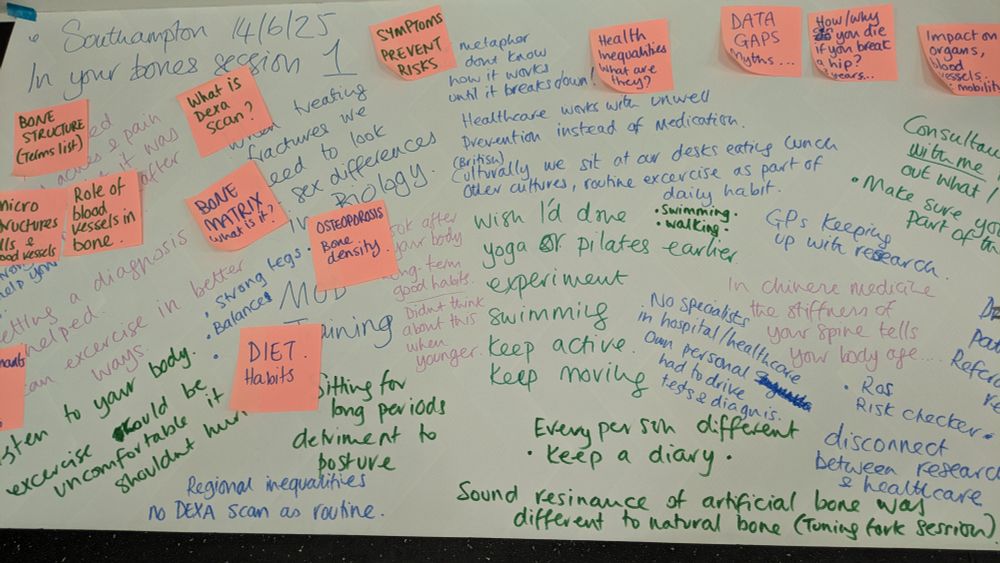 Southampton 14/6/25
In your bones session 1
SYMPTOMS
PREVENT
RISKS
metaphor
dont know
how it works
until it breaks down!
Health
inequalities
what are
they?
DATA
GAPS
Myths...
How/why
you die
if you break
a hip?
years...
Impact on
organs,
blood
vessels.
mobility
BONE
STRUCTURE
(Terms list)
& pain
it was
after
What is
Dexa
Scan?
treating
fractures we
need to look
sex differences
in Biology.
Healthcare works with unwell
Prevention instead of Medication.
(British)
Culturally we sit at our desks eating lunch
Other cultures, routine exercise as part of
daily habit.
Consultan
with me
out what I
• Make sure you
part of
Role of
blood
vessels in
bone.
BONE
MATRIX
what is it?
OSTEOPOROSIS
Bone
density.
look after
your body
long-term
good habits.
Didn't think
about this
when
younger.
wish I'd done
yoga or pilates earlier
experiment
swimming
keep active.
keep moving
• swimming •
• walking •
GPs keeping
up with research.
In chinese medicine
the stiffness of
your spine tells
your body age....
No specialists
in hospital/healthcare
Own personal
had to drive
tests & diagnis.
getting a diagnosis
helped.
can exercise in better
ways.
• Strong legs.
• Balance
Training
DIET.
Habits
listen to your body.
exercise should be
uncomfortable it
shouldnt hurt
Sitting for
long periods
detriment to
posture
Regional inequalities
no DEXA scan as routine.
Every person different
• keep a diary •
• Ros
Risk checker •
disconnect
between research
& healthcare
Sound resinance of artificial bone was
different to natural bone (Tuning fork session)